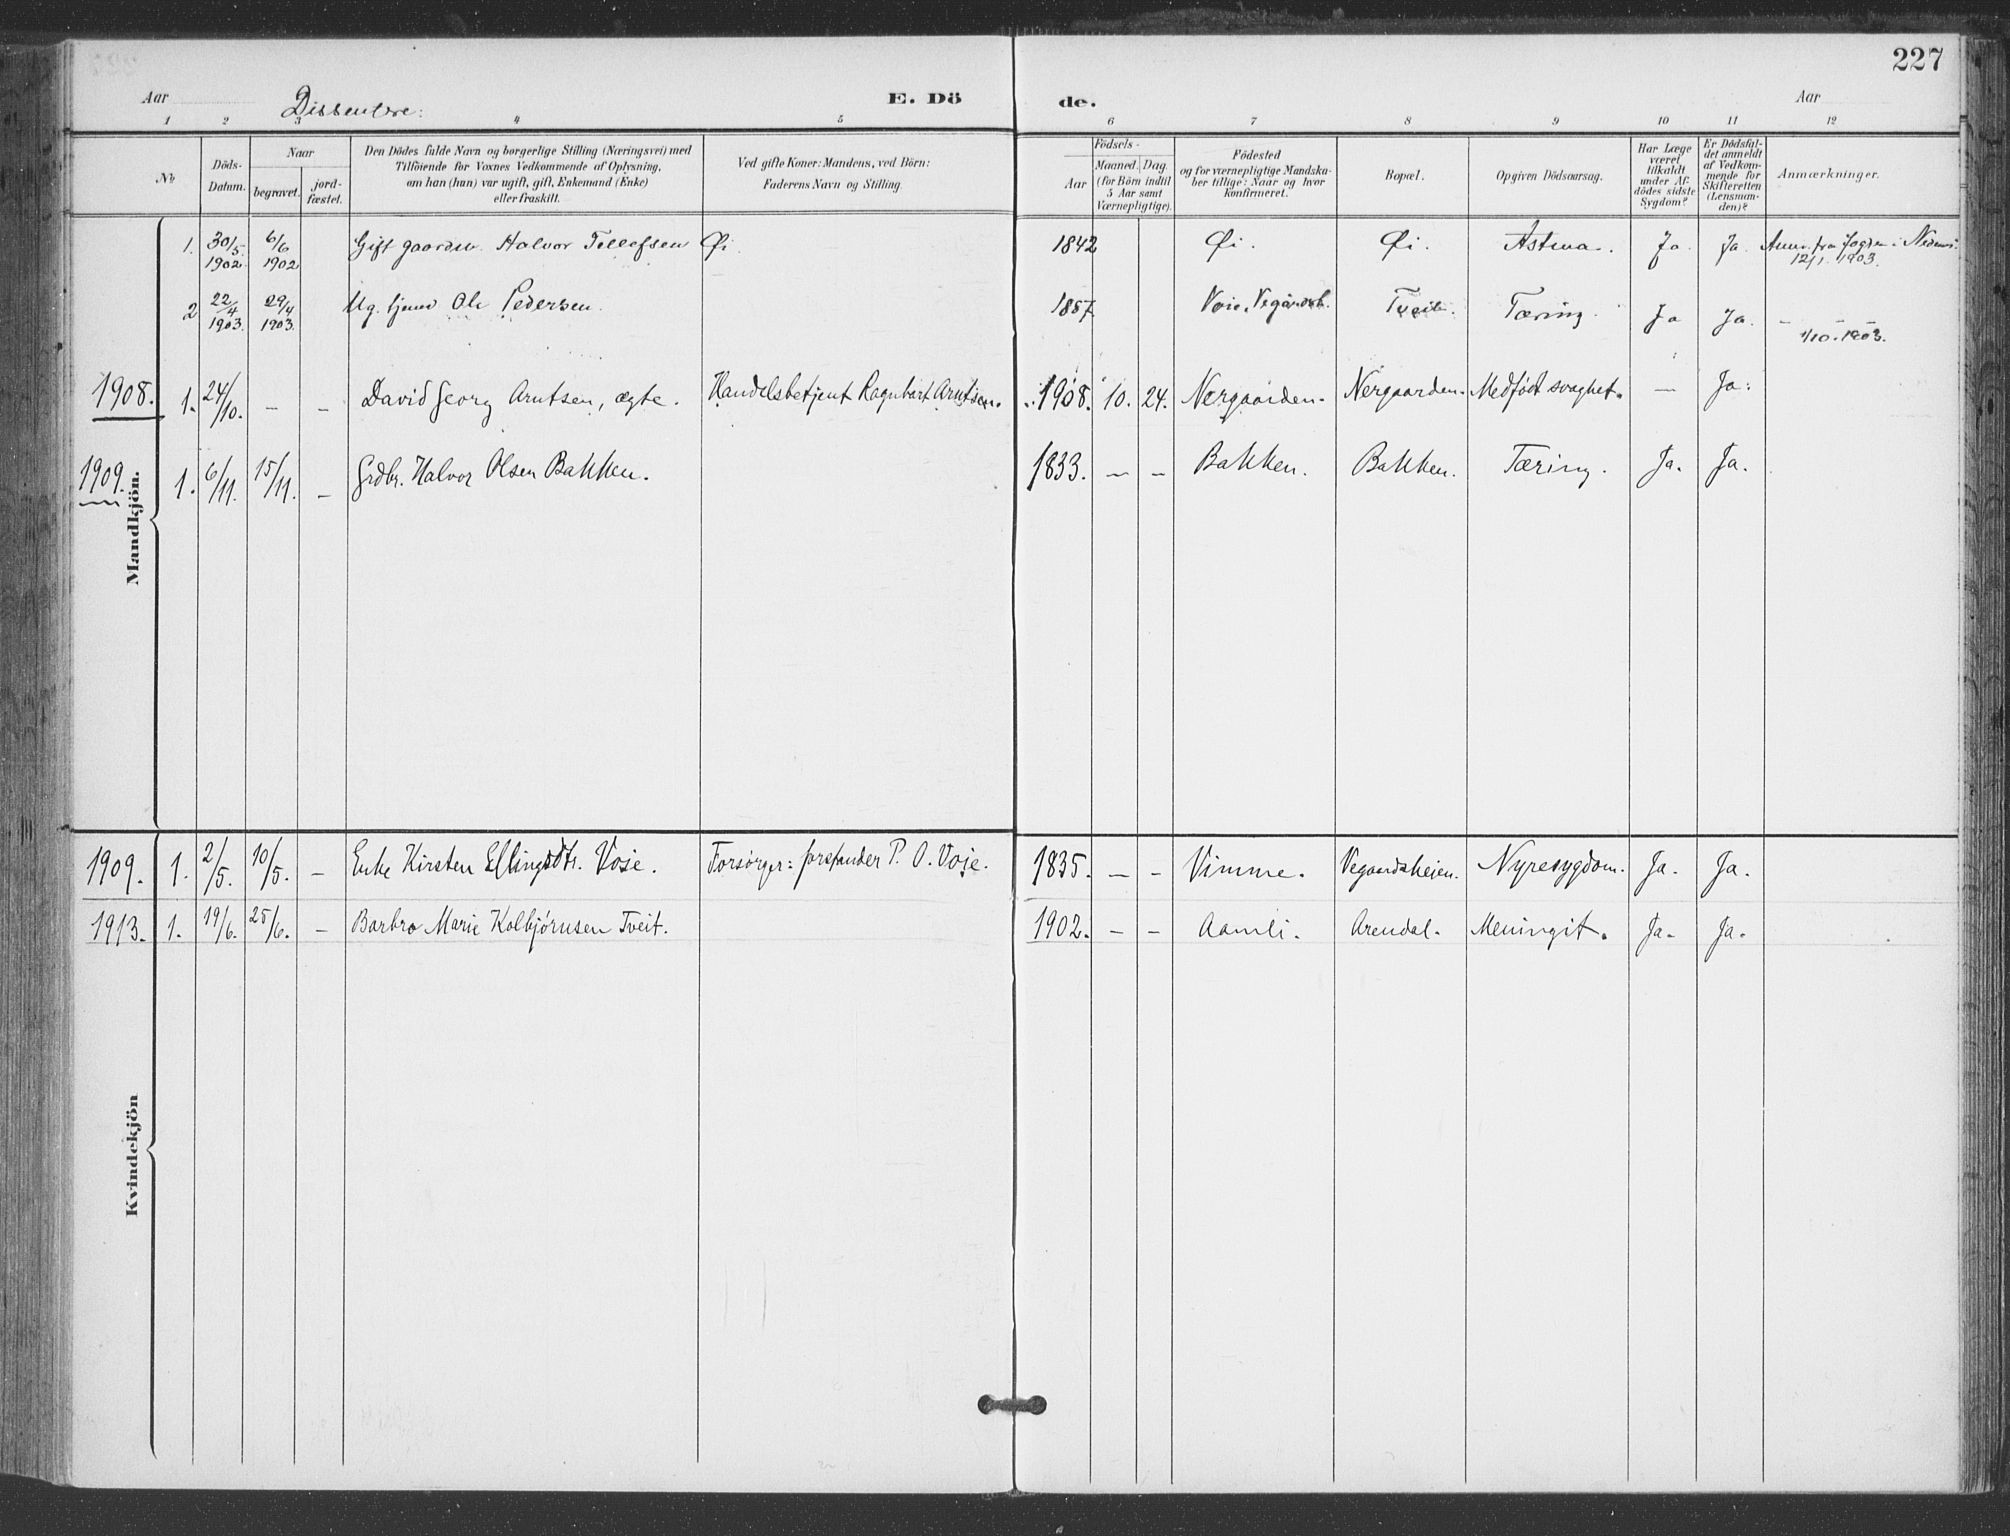 227
Aar Dissentere: E. Dö de. Aar
1 2 3 4 5 6 7 8 9 10 11 12
No
Döds-Datum.
Naar
begravet.
jord-fæstet.
Den Dödes fulde Navn og borgerlige Stilling (Næringsvei) med
Tilföiende for Voxnes Vedkommende af Oplysning,
om han (hun) var ugift, gift, Enkemand (Enke)
eller fraskilt.
Ved gifte Koner: Mandens, ved Börn:
Faderens Navn og Stilling.
Födsels-
Aar
Maaned. Dag.
(for Börn indtil
5 Aar samt
Værnepligtige).
Födested
og for værnepligtige Mandska-
ber tillige: Naar og hvor
konfirmeret.
Bopæl.
Opgiven Dödsaarsag.
Har Læge
været
tilkaldt
under Af-
dödes sidste
Sygdom?
Er Dödsfal-
det anmeldt
af Vedkom-
mende for
Skifteretten
(Lensman-
den)?
Anmærkninger.
1. 30/5 1902 6/6 1902 Gift gaardm. Halvor Tellefsen Øi. 1842 Øi. Øi. Astma. Ja Ja. Anm. fra Fogden i Nedenes 12/1 1903.
2 22/4 1903. 29/4 1903. Ug. Ole Pedersen. 1857 Voie, Vegårdsh. Tveit. Tæring. Ja Ja. – – 1/10. 1903.
1908. 1. 24/10. – – David Georg Arntsen, ægte. Handelsbetjent Ragnhart Arntsen. 1908. 10. 24. Nergaarden. Nergaarden. Medfødt svaghet. – Ja.
1909. 1. 6/11. 15/11. – Grdbr. Halvor Olsen Bakken. 1833. – – Bakken. Bakken. Tæring. Ja. Ja.
Mandkjön.
1909. 1. 2/5. 10/5. – Enke Kirsten Ellingsdtr. Voje. Forsørger: forstander P. O. Voje. 1835. – – Vimme. Vegaardsheien. Nyresygdom. Ja. Ja.
1913. 1. 19/6. 25/6. – Barbro Marie Kolbjørnsen Tveit. 1902. – – Aamli. Arendal. Meningit. Ja. Ja.
Kvindekjön